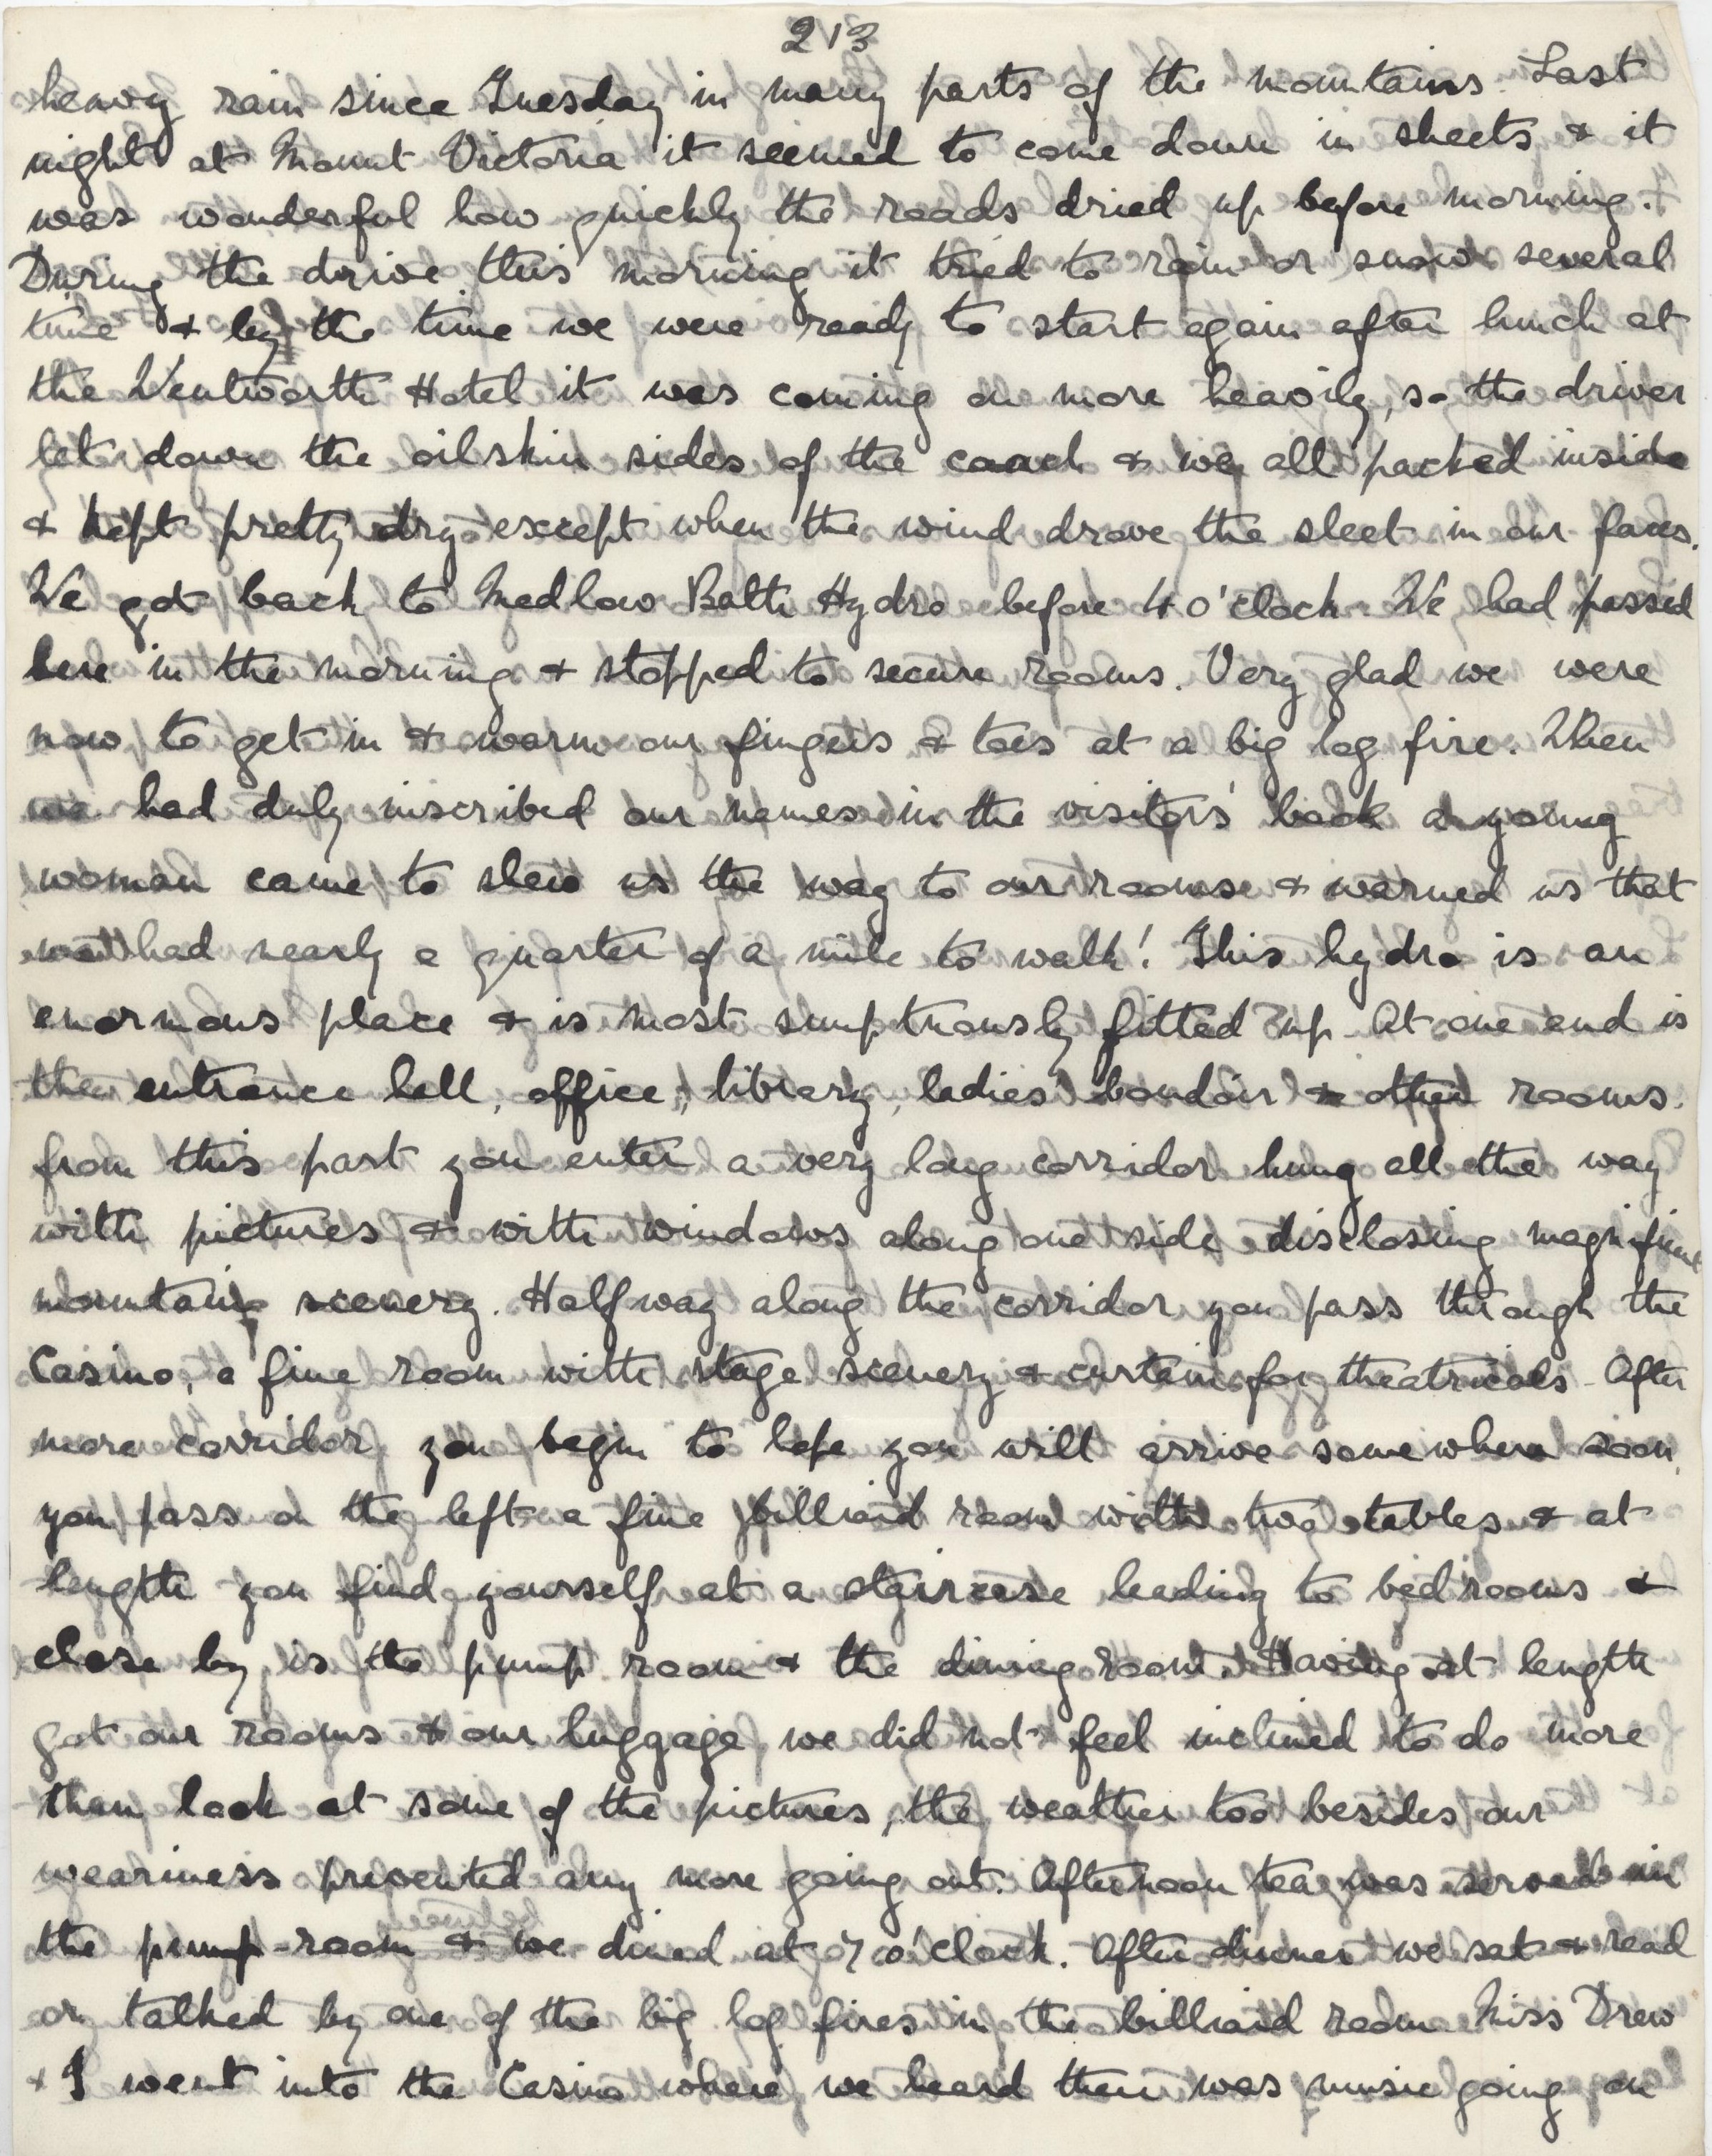 213
heavy rain since Tuesday in many parts of the mountains. Last
night at Mount Victoria it seemed to come down in sheets & it
was wonderful how quickly the roads dried up before morning.
During the drive this morning it tried to rain or snow several
time & by the time we were ready to start again after lunch at
the Wentworth Hotel it was coming on more heavily, so the driver
let down the oilskin sides of the coach & we all packed inside
& kept pretty dry except when the wind drove the sleet in our faces.
We got back to Medlow Bath Hydro before 4 o'clock. We had passed
here in the morning & stopped to secure rooms. Very glad we were
now to get in & warm our fingers & toes at a big log fire. When
we had duly inscribed our names in the visitors' book a young
woman came to shew us the way to our rooms & warned us that
we had nearly a quarter of a mile to walk! This hydro is an
enormous place & is most sumptuously fitted up. At one end is
the entrance hall, office, library, ladies' boudoir & other rooms.
from this part you enter a very long corridor hung all the way
with pictures & with windows along one side disclosing magnificent
mountain scenery. Halfway along the corridor you pass through the
Casino, a fine room with stage scenery & curtain for theatricals. After
more corridor you begin to hope you will arrive somewhere soon,
you pass on the left a fine billiard room with two tables & at
length you find yourself at a staircase leading to bedrooms &
close by is the pump room & the dining room. Having at length
got our rooms & our luggage, we did not feel inclined to do more
than look at some of the pictures, the weather too besides our
weariness prevented any more going out. Afternoon tea was served in
the pump-room & we dined at 7 o'clock. After dinner we sat & read
or talked by one of the big log fires in the billiard room. Miss Drew
& I went into the Casino where we heard there was music going on